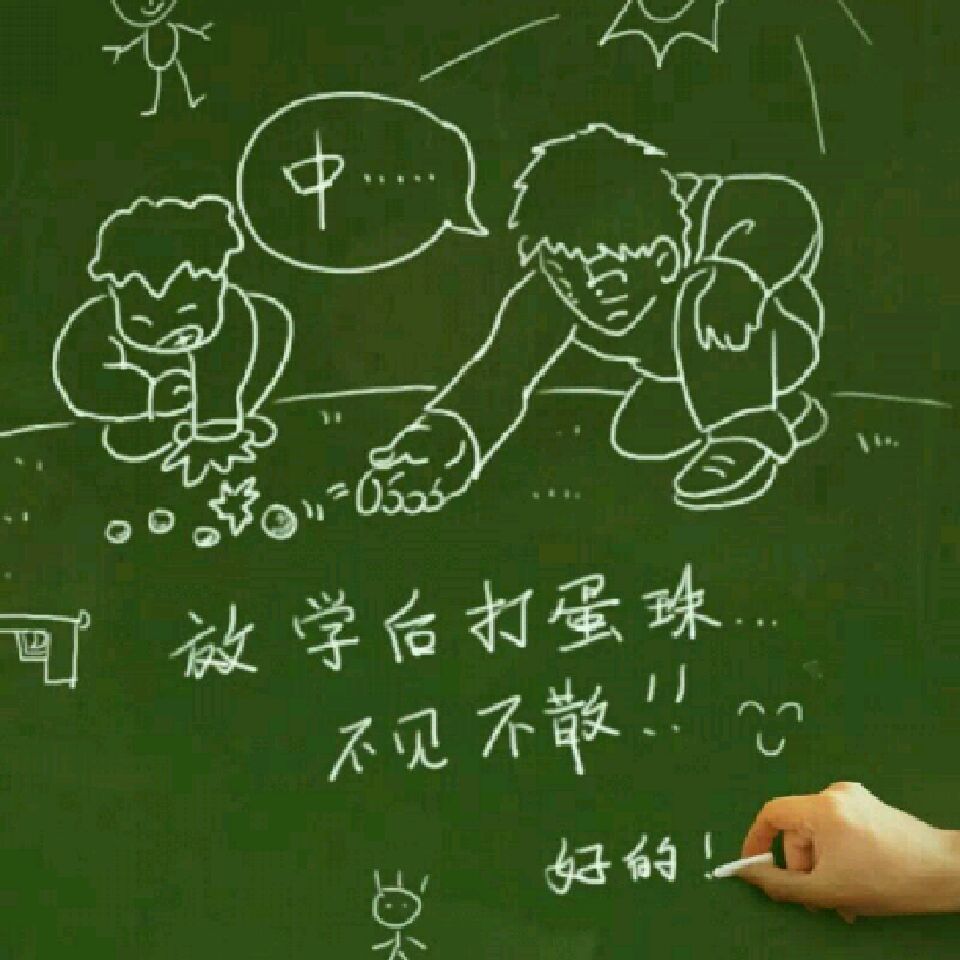 中……
放学后打蛋珠…
不见不散!!
好的!